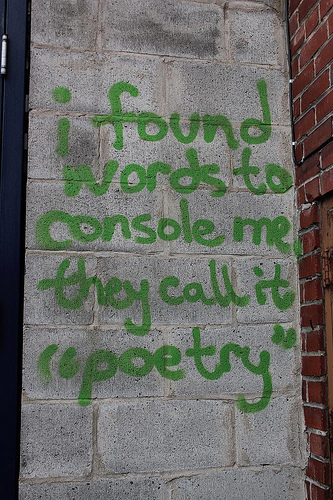 i found
words to
console me.
they call it
"poetry"